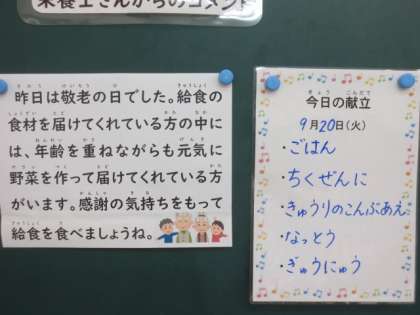 栄養士さんからのコメント
昨日は敬老の日でした。給食の
食材を届けてくれている方の中に
は、年齢を重ねながらも元気に
野菜を作って届けてくれている方
がいます。感謝の気持ちをもって
給食を食べましょうね。
今日の献立
9月20日(火)
・ごはん
・ちくぜんに
・きゅうりのこんぶあえ
・なっとう
・ぎゅうにゅう